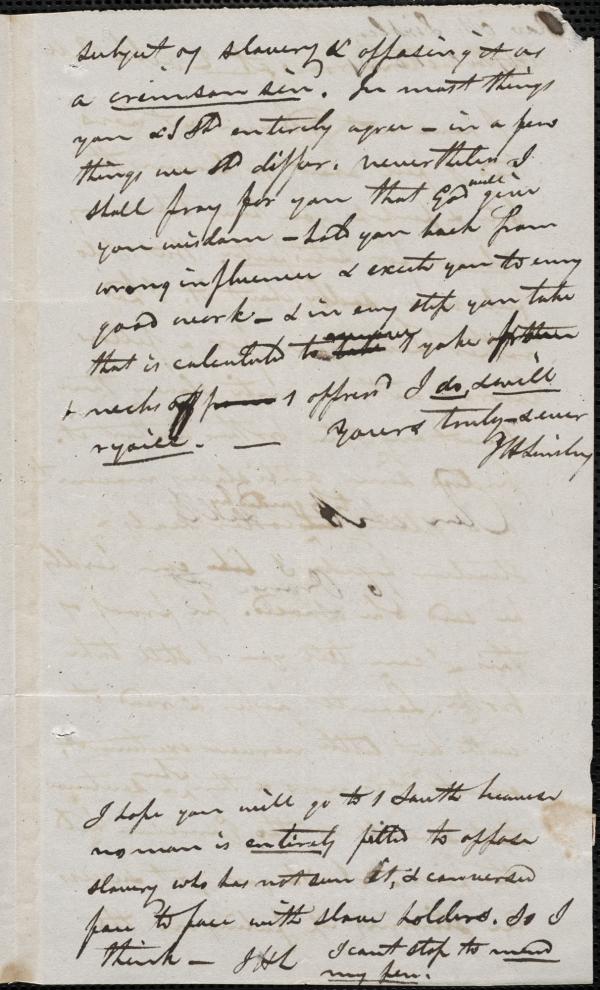 subject of slavery & opposing it as
a crimson sin. In most things
you & I shd entirely agree – in a few
things we shd differ. nevertheless I
shall pray for you that God will give
you wisdom – hold you back from
wrong influence & excite you to every
good work – & in any step you take
that is calculated to remove 1 yoke
necks of 1 oppresd I do, & will
rejoice. — Yours truly & ever
J H Linsley
I hope you will go to 1 South because
no man is entirely fitted to oppose
slavery who has not seen it, & conversed
face to face with slave holders. So I
think – J H L I cant stop to mend
my pen.